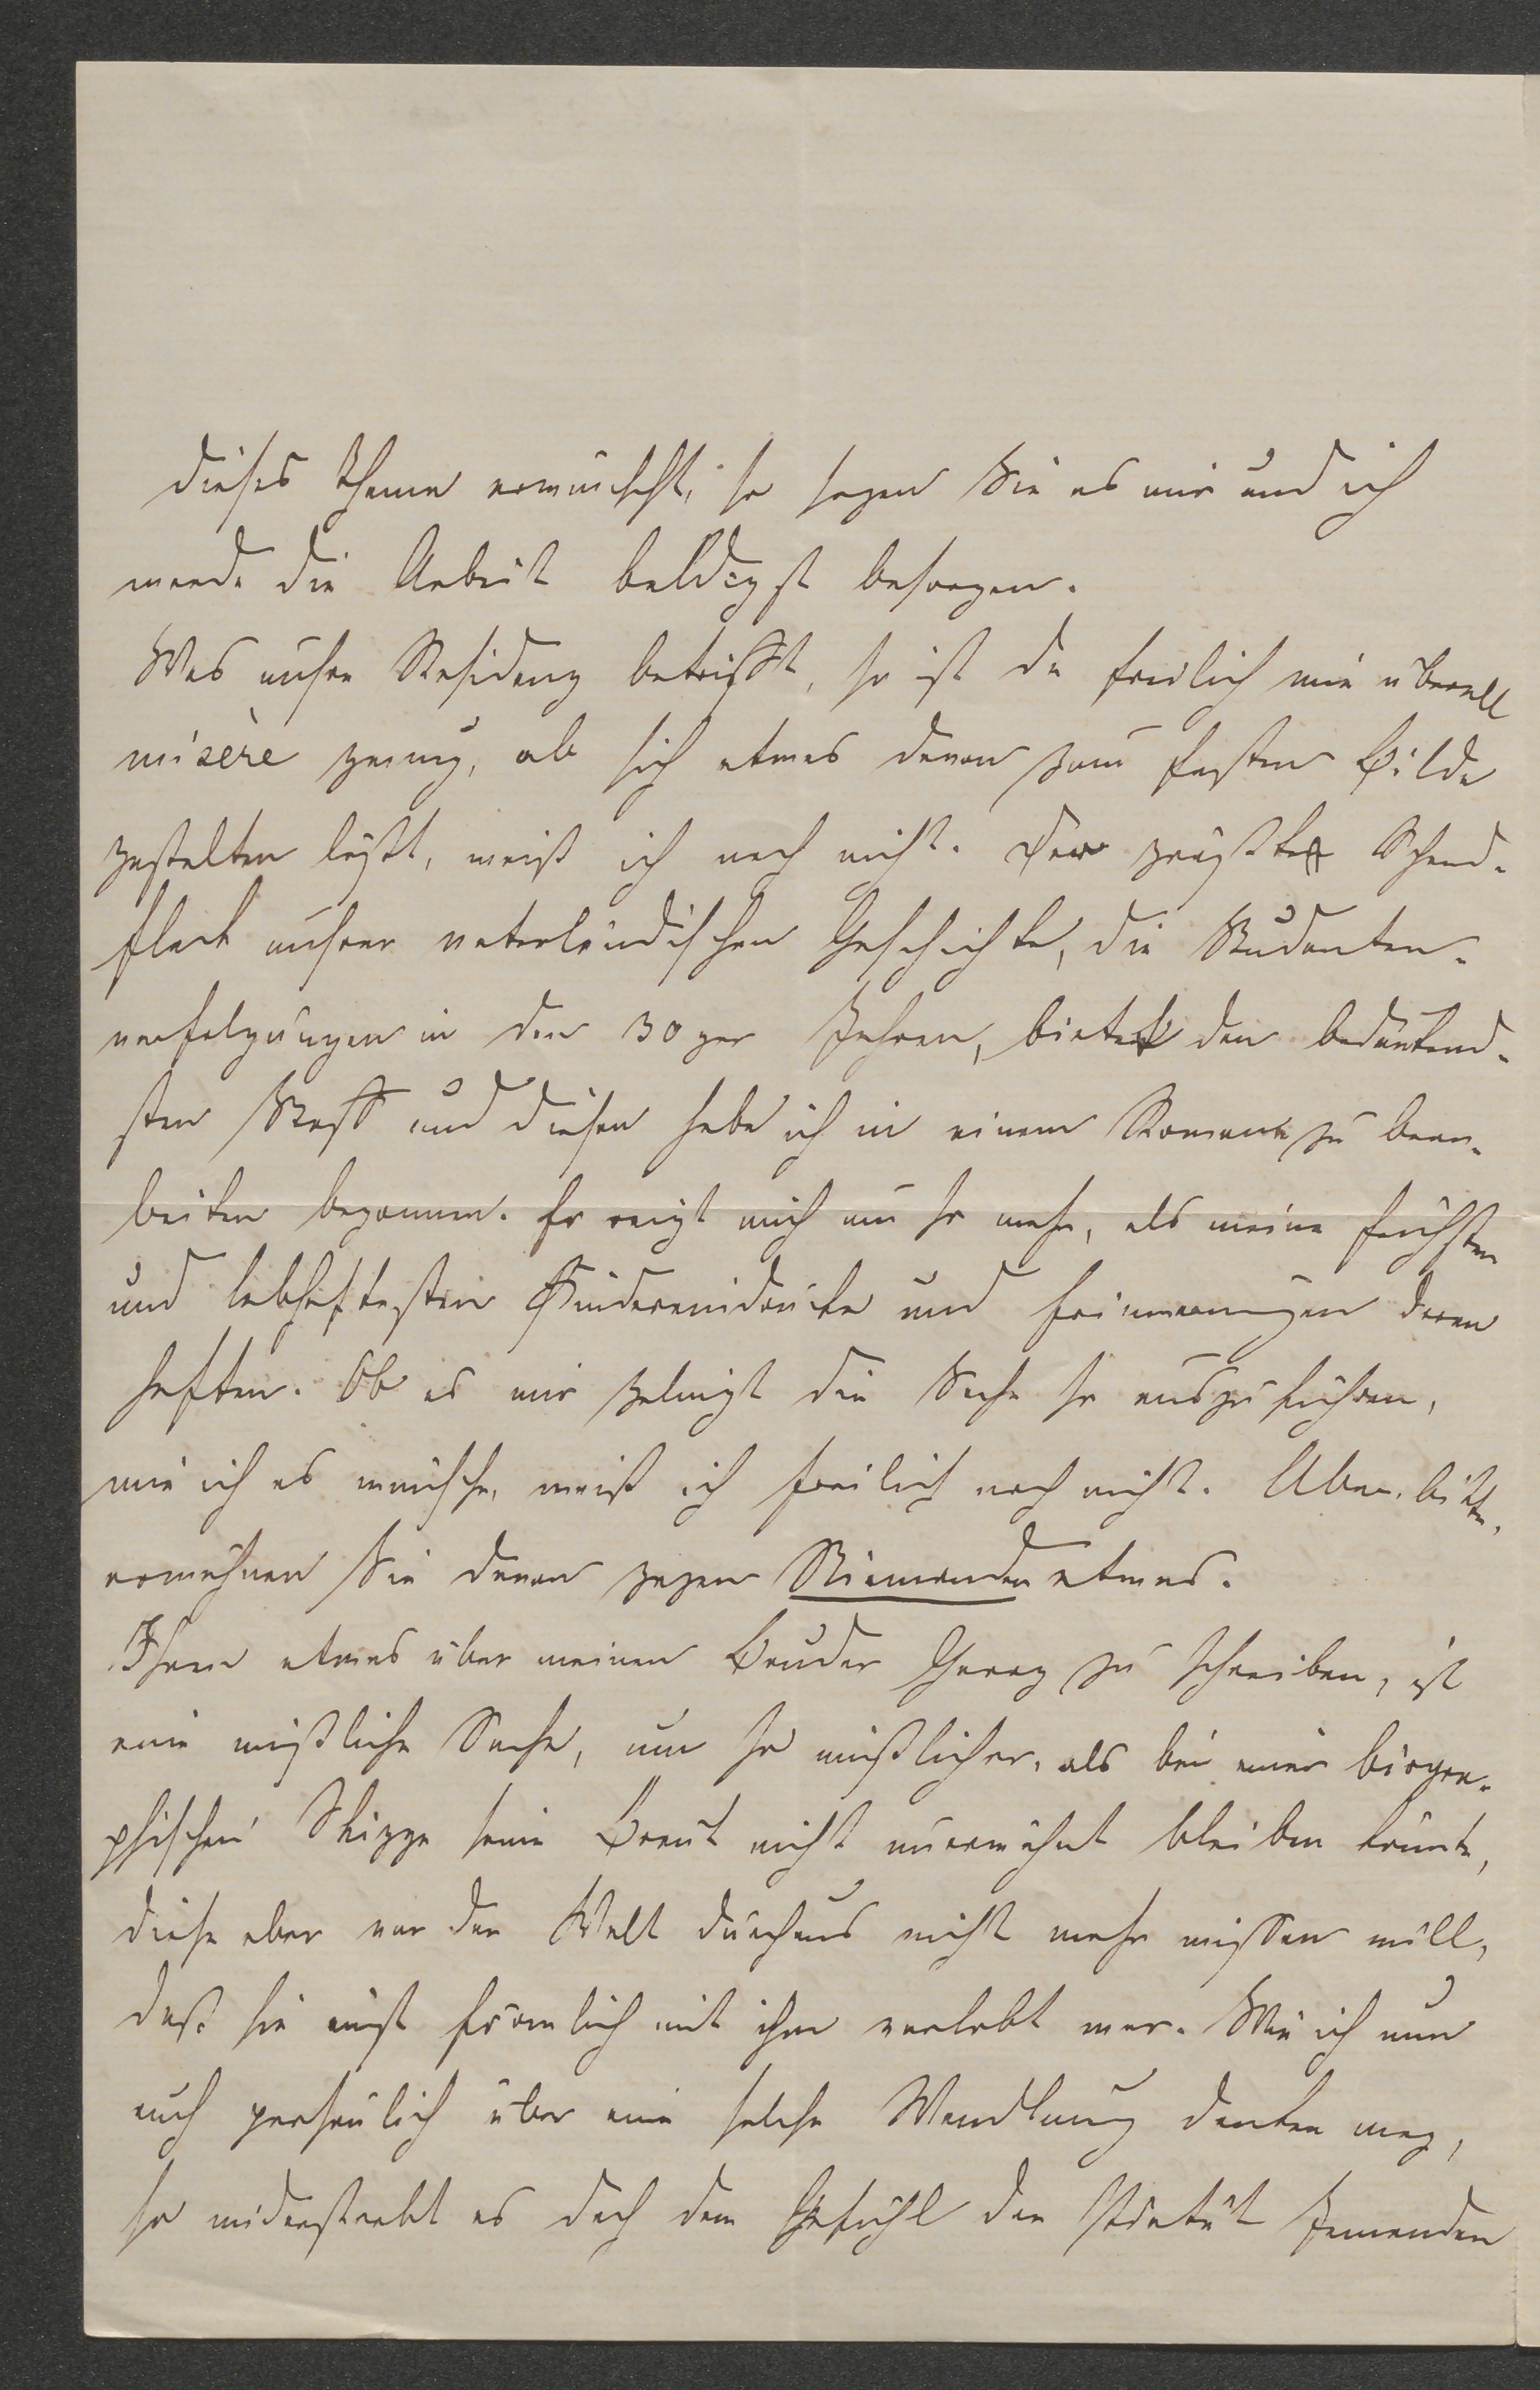 dieses Thema erwünscht, so sagen Sie es mir und ich
werde die Arbeit baldigst besorgen.
Was unsre Residenz betrifft, so ist da freilich wie überall
misère genug, ob sich etwas davon zum festen Bilde
gestalten läßt, weiß ich noch nicht. Der größte Schand-
fleck unsrer vaterländischen Geschichte, die Studenten-
verfolgungen in den 30ger Jahren, bietet den bedeutend-
sten Stoff und diesen habe ich in einem Roman zu bear-
beiten begonnen. Er reizt mich um so mehr, als meine frühsten
und lebhaftesten Kindereindrücke und Erinnerungen daran
haften. Ob es mir gelingt die Sache so auszuführen,
wie ich es wünsche, weiß ich freilich noch nicht. Aber, bitte,
erwähnen Sie davon gegen Niemanden etwas.
Ihnen etwas über meinen Bruder Georg zu schreiben, ist
eine mißliche Sache, um so mißlicher, als bei einer biogra-
phischen Skizze seine Braut nicht unerwähnt bleiben könnte,
diese aber vor der Welt durchaus nicht mehr wissen will,
daß sie einst förmlich mit ihm verlobt war. Wie ich nun
auch persönlich über eine solche Wandlung denken mag,
so widerstrebt es doch dem Gefühl der Pietät Jemanden